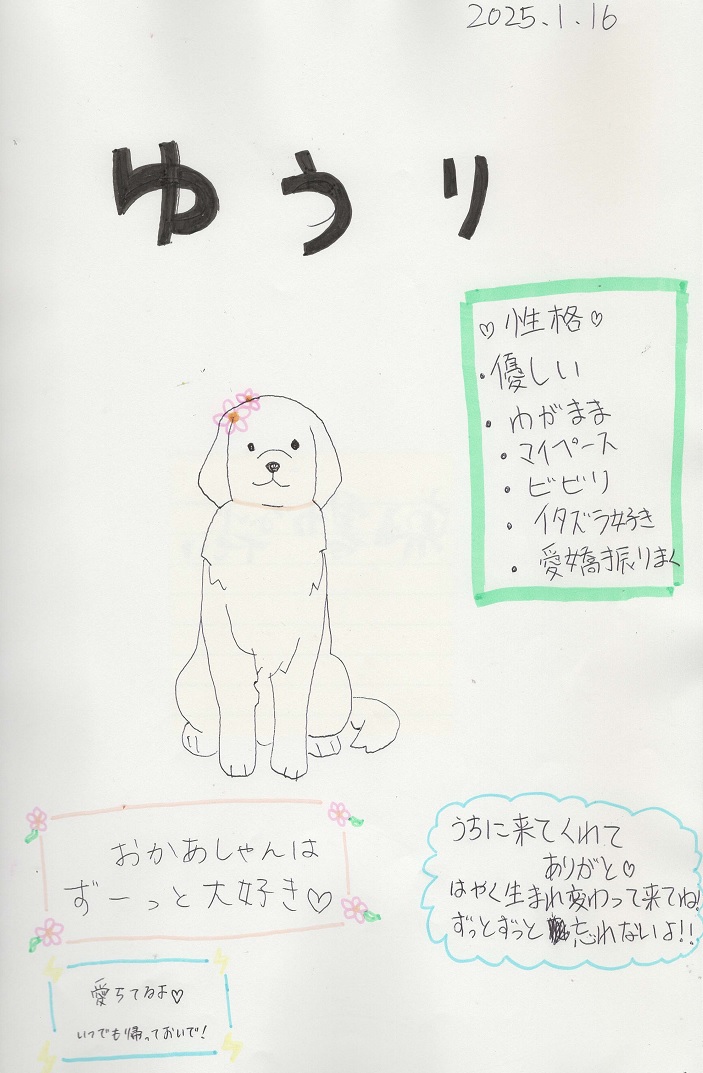 2025.1.16
ゆうり
♡性格♡
・優しい
・わがまま
・マイペース
・ビビリ
・イタズラ好き
・愛嬌振りまく
おかあしゃんは
ずーっと大好き♡
うちに来てくれて
ありがと♡
はやく生まれ変わって来てね!
ずっとずっと忘れないよ!!
愛してるよ♡
いつでも帰っておいで!